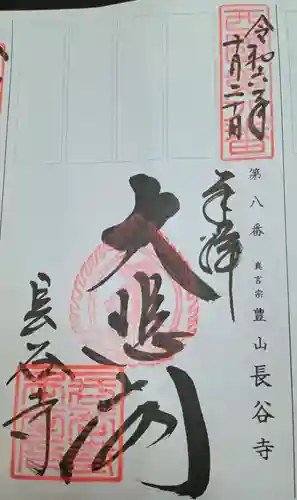 令和六年
十月二十日
第八番 真言宗 豊山長谷寺
奉拝
大悲閣
長谷寺